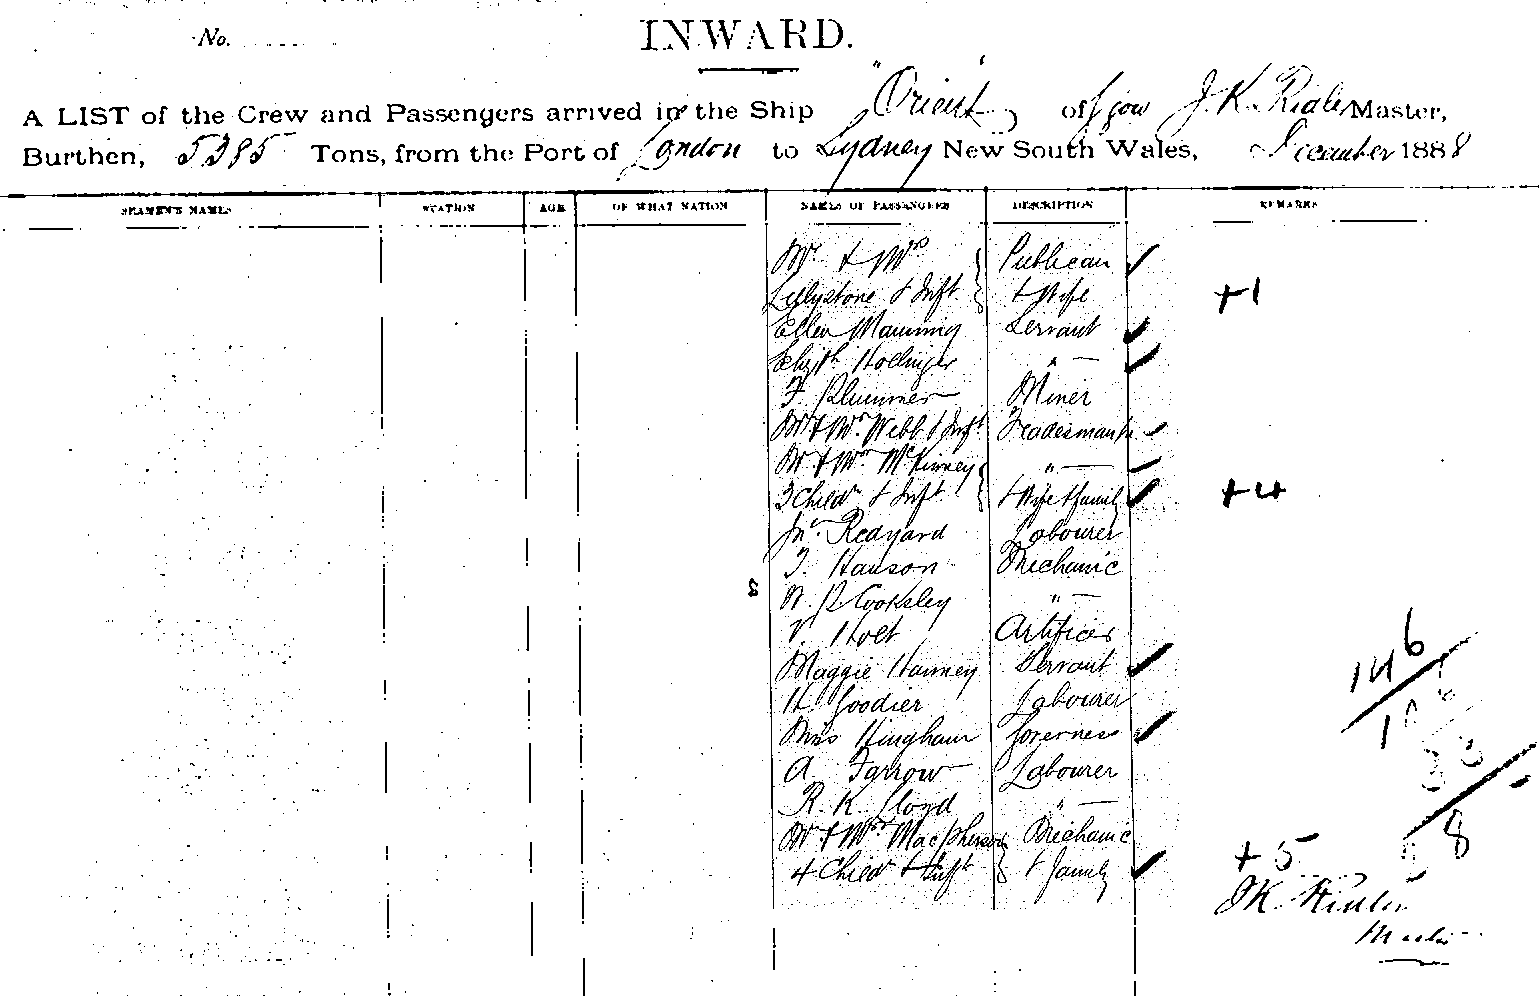 No.
INWARD.
A LIST of the Crew and Passengers arrived in the Ship "Orient" of J. K. Master,
Burthen, 5385 Tons, from the Port of London to Sydney New South Wales, December 1888
SEAMEN'S NAMES STATION AGE OF WHAT NATION NAMES OF PASSENGERS DESCRIPTION REMARKS
Mr & Mrs Publican
Lillystone & Inft & Wife +1
Ellen Manning Servant
Hollinger "
F. Plummer Miner
Mr & Mrs Webb & Inft Tradesman
Mr & Mrs McKinney "
3 Child & Inft & Wife & family +4
Jno. Redyard Labourer
T. Hanson Mechanic
8 W. P. Cooksley "
V. Holt Artificer
146
Maggie Hanney Servant
H. Goodier Labourer
Miss Hingham Governess
A. Farrow Labourer
R. K. Lloyd "
Mr & Mrs Macpherson Mechanic 8
4 Child & Inft & family +5
J K
Master